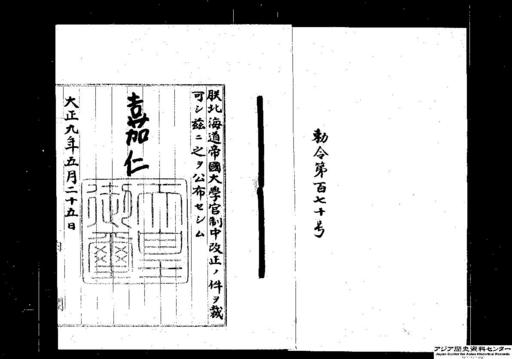 勅令第百七十号
朕北海道帝國大學官制中改正ノ件ヲ裁
可シ茲ニ之ヲ公布セシム
嘉仁
天皇御璽
大正九年五月二十五日
アジア歴史資料センター
Japan Center for Asian Historical Records